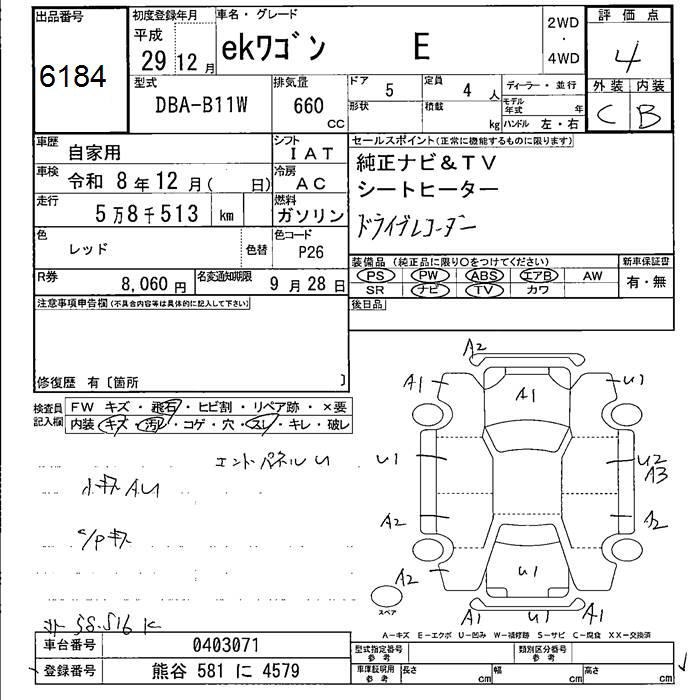 出品番号
6184
初度登録年月
平成
29 12 月
車名・グレード
ekワゴン E
2WD
・
4WD
評価点
4
外装 内装
C B
型式
DBA-B11W
排気量
660
CC
ドア
5
定員
4 人
形状
積載
kg
ディーラー・並行
モデル年式 年
ハンドル 左・右
車歴
自家用
シフト
IAT
車検
令和 8年12月( 日)
冷房
AC
走行
5万8千513 km
燃料
ガソリン
色
レッド
色替
色コード
P26
R券
8,060円
名変通知期限
9月28日
セールスポイント(正常に機能するものに限ります)
純正ナビ&TV
シートヒーター
ドライブレコーダー
装備品(純正品に限り〇をつけてください)
新車保証書
PS PW ABS エアB AW
SR ナビ TV カワ
有・無
後日品
注意事項申告欄(不具合内容等は具体的に記入して下さい)
修復歴 有〔箇所 〕
検査員記入欄
FW キズ・飛石・ヒビ割・リペア跡・×要
内装 キズ・汚レ・コゲ・穴・スレ・キレ・破レ
エンドパネルU
小キズAU
C/Pキズ
58.516K
A2
A1
A1
U1
U1
U2
A3
A2
A2
A2
U1
スペア
A1
U1
A1
A－キズ E－エクボ U－凹み W－補修跡 S－サビ C－腐食 XX－交換済
車台番号
0403071
登録番号
熊谷 581 に 4579
型式指定番号
参考
類別区分番号
参考
車庫証明用
参考
長さ cm
幅 cm
高さ cm